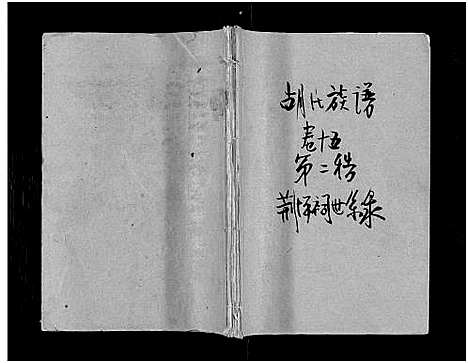 胡氏族谱
卷十五
第二
荆 祠世录